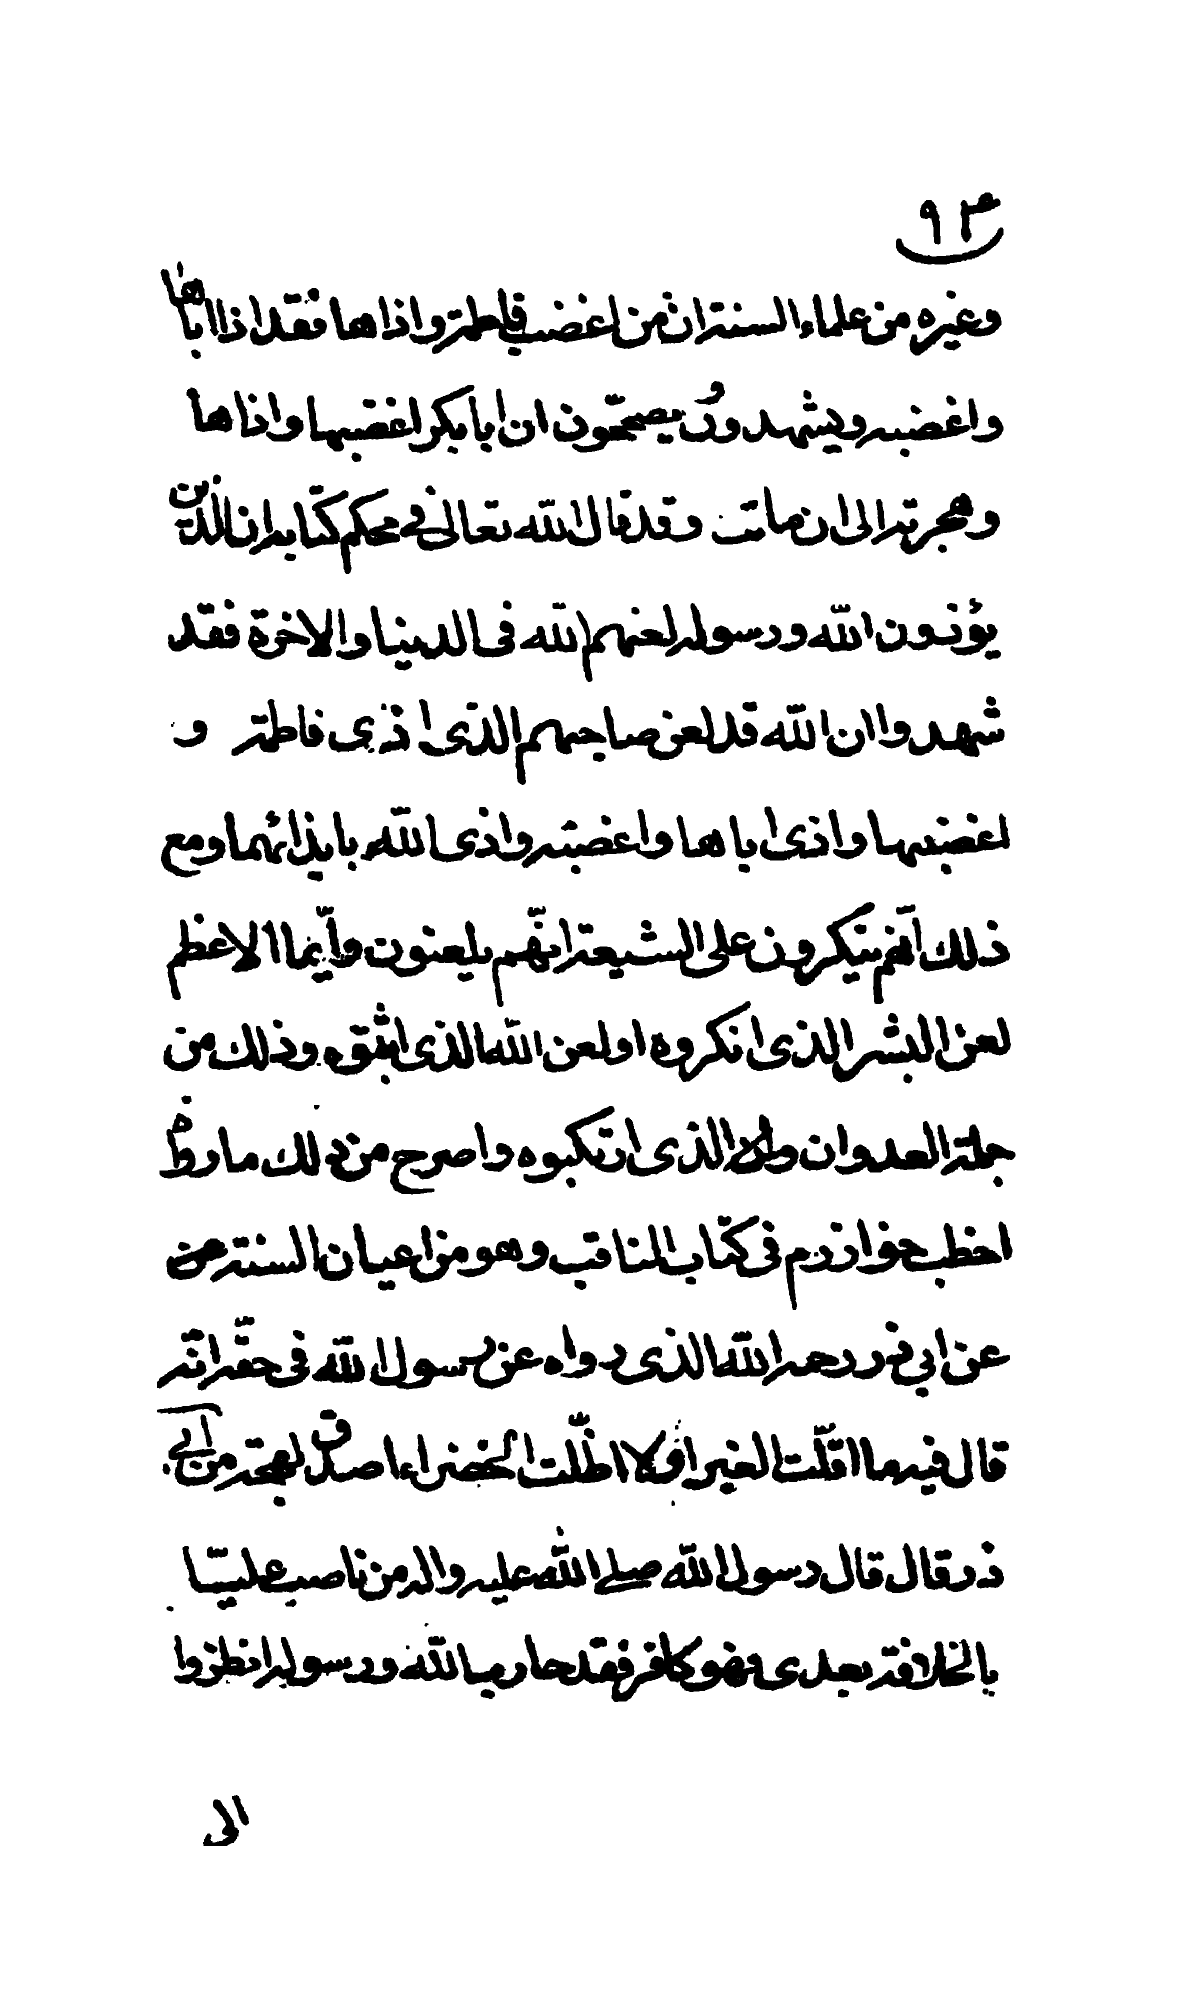 ٩٣
وغيره من علماء السنة ان من اغضب فاطمة واذاها فقد اذا اباها
واغضبه ويشهدون ويصححون ان ابا بكر اغضبها واذاها
وهجرته الى ان ماتت وقد قال الله تعالى في محكم كتابه ان الذين
يؤذون الله ورسوله لعنهم الله فى الدنيا والاخرة فقد
شهدوا ان الله قد لعن صاحبهم الذى اذى فاطمة و
اغضبها واذى اباها واغضبه واذى الله بايذائهما ومع
ذلك انهم ينكرون على الشيعة انهم يلعنون وايما الاعظم
لعن البشر الذى انكروه او لعن الله الذى اثبتوه وذلك من
جملة العدوان والا الذى ارتكبوه واصرح من ذلك ما رواه
اخطب خوارزم فى كتاب المناقب وهو من اعيان السنة
عن ابي ذر رحمه الله الذى رواه عن رسول الله في حقه انه
قال فيه ما اقلّت الغبراء ولا اظلّت الخضراء اصدق لهجة من ابي
ذر قال قال رسول الله صلى الله عليه واله من ناصب عليّا
بالخلافة بعدى فهو كافر فقد حارب الله ورسوله انظروا
الى